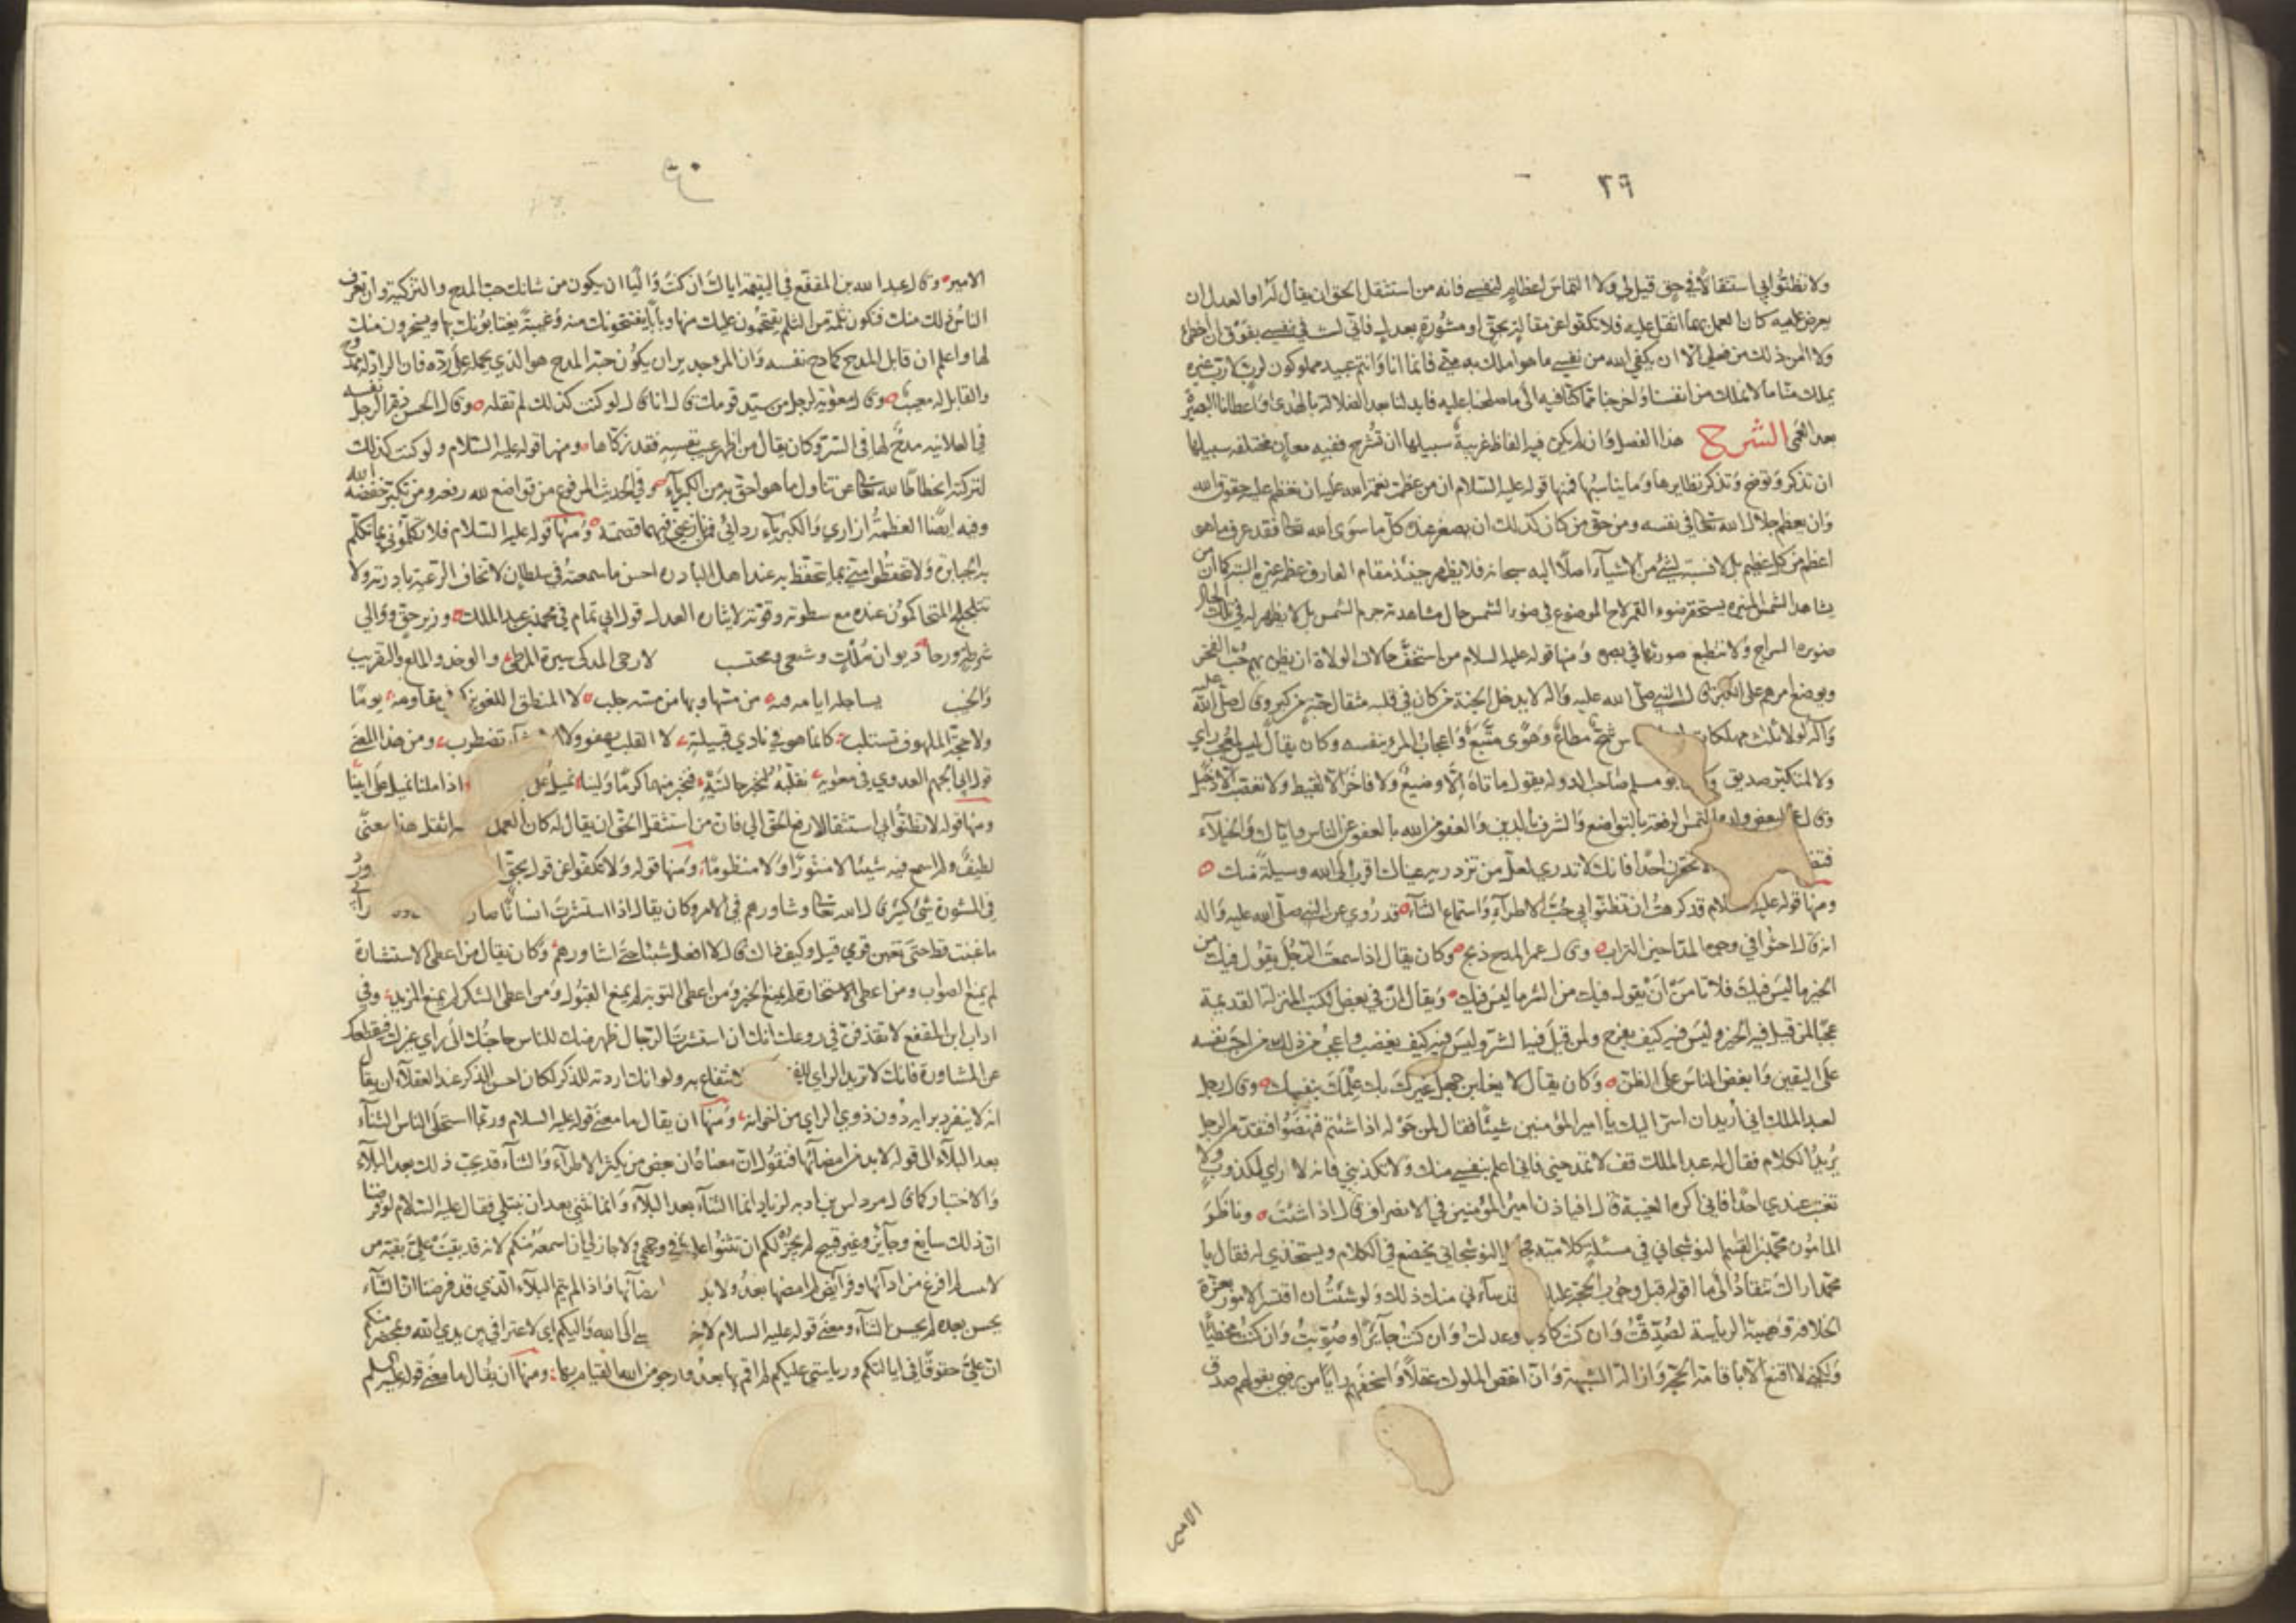 ٢٩
ولا تظنوا بي استثقالا في حق قيل لي ولا التماس اعظام لنفسي فانه من استثقل الحق ان يقال له او العدل ان
يعرض عليه كان العمل بهما اثقل عليه فلا تكفوا عن مقالة بحق او مشورة بعدل فاني لست في نفسي بفوق ان اخطئ
ولا امن ذلك من فعلي الا ان يكفي الله من نفسي ما هو املك به مني فانما انا وانتم عبيد مملوكون لرب لا رب غيره
يملك منا ما لا نملك من انفسنا واخرجنا مما كنا فيه الى ما صلحنا عليه فابدلنا بعد الضلالة بالهدى واعطانا البصيرة
بعد العمى الشرح هذا الفصل وان لم يكن فيه الفاظ غريبة سبيلها ان تشرح ففيه معان مختلفه سبيلها
ان تذكر وتوضح وتذكر نظايرها وما يناسبها فمنها قوله عليه السلام ان من عظمت نعمة الله عليه ان تعظم عليه حقوق الله
وان يعظم جلال الله تعالى في نفسه ومن حق من كان كذلك ان يصغر عنده كل ما سوى الله تعالى فقد عرف ما هو
اعظم من كل عظيم بل لا نسبة لشئ من الاشياء اصلا اليه سبحانه فلا يظهر حينئذ مقام العارف عظمة غيره البتة كما ان من
يشاهد الشمس المنيره يستحقر ضوء القمر والسراج الموضوع في ضوء الشمس حال مشاهدته جرم الشمس بل لا يظهر له في تلك الحال
صنوبره السراج ولا تنطبع صورتها في بصره ومنها قوله عليه السلام من استخف حالات الولاة ان يظن بهم حب الفخر
ويوضع امرهم على الكبر قال النبي صلى الله عليه وآله لا يدخل الجنة من كان في قلبه مثقال حبة من كبر وقال صلى الله عليه
وآله لولا ثلث مهلكات شح مطاع وهوى متبع واعجاب المرء بنفسه وكان يقال ليس لمعجب راي
ولا لمتكبر صديق وكان ابو مسلم صاحب الدوله يقول ما تاه الا وضيع ولا فاخر الا لقيط ولا تعصب الا دخيل
وقال لبعض ولده التمس الرفعة بالتواضع والشرف بالدين والعفو من الله بالعفو عن الناس واياك والخيلاء
فتضع لا تحقرن احدا فانك لا تدري لعل من تزدريه عيناك اقرب الى الله وسيلة منك
ومنها قوله عليه السلام قد كرهت ان تظنوا بي حب الاطراء واستماع الثناء قد روي عن النبي صلى الله عليه وآله
انه قال احثوا في وجوه المداحين التراب وقال عمر المدح ذبح وكان يقال اذا سمعت الرجل يقول فيك من
الخير ما ليس فيك فلا تامن ان يقول فيك من الشر ما ليس فيك ويقال ان في بعض الكتب المنزلة القديمة
عجبا لمن قيل فيه الخير وليس فيه كيف يفرح ولمن قيل فيه الشر وليس فيه كيف يغضب واعجب من ذلك من احب نفسه
على اليقين وابغض الناس على الظن وكان يقال لا يغلبن جهل غيرك بك علمك بنفسك وقال رجل
لعبد الملك اني اريد ان اسر اليك يا امير المؤمنين شيئا فقال لمن حوله اذا شئتم فنهضوا فتقدم الرجل
يريد الكلام فقال له عبد الملك قف لا تمدحني فاني اعلم بنفسي منك ولا تكذبني فانه لا راي لمكذوب ولا
تغتب عندي احدا فاني اكره الغيبة قال افياذن امير المؤمنين في الانصراف قال اذا شئت وناظر
المامون محمد بن القسم النوشجاني في مسئلة كلامية النوشجاني يخضع في الكلام ويستخذي له فقال يا
محمد اراك تنقاد الى ما اقوله قبل وجوب الحجة عليك وقد ساءني منك ذلك ولو شئت ان اقتسر الامور بعزة
الخلافة وهيبة الرياسة لصدقت وان كنت كاذبا وعدلت وان كنت جائرا وصوبت وان كنت مخطئا
ولكني لا اقنع الا باقامة الحجة وازالة الشبهة وان انقص الملوك عقلا واسخفهم رايا من رضي بقولهم صدق
الامير
٣٠
الامير وقال عبد الله بن المقفع في اليتيمة اياك اذا كنت واليا ان يكون من شانك حب المدح والتزكية وان يعرف
الناس ذلك منك فتكون ثلمة من الثلم يقتحمون عليك منها وبابا يفتتحونك منه وغيبة يغتابونك بها ويسخرون منك
لها واعلم ان قابل المدح كمادح نفسه وان المرء جدير ان يكون حبه المدح هو الذي يحمله على رده فان الراد له ممدوح
والقابل له معيب وقال معوية لرجل من سيد قومك قال انا قال لو كنت كذلك لم تقله وقال الحسن ذم الرجل نفسه
في العلانيه مدح لها في السر وكان يقال من اظهر عيب نفسه فقد زكاها ومنها قوله عليه السلام ولو كنت كذلك
لتركته انحطاطا لله تعالى عن تناول ما هو احق به من الكبرياء وفي الحديث المرفوع من تواضع لله رفعه ومن تكبر خفضه الله
وفيه ايضا العظمة ازاري والكبرياء ردائي فمن نازعني فيهما قصمته ومنها قوله عليه السلام فلا تكلموني بما تكلم
به الجبابرة ولا تتحفظوا مني بما يتحفظ به عند اهل البادره احسن ما سمعته في سلطان لا تخاف الرعية بادرته ولا
تتلجلج المتحاكمون عنده مع سطوته وقوته لايثاره العدل قول ابي تمام في محمد بن عبد الملك وزير حق ووالي
شرطة ورحا ديوان ملك وشيعي ومحتسب كالارحبي المذكى سيره المرطى والوخد والملع والتقريب
والخبب يساجله ايامه من مسها وبها من مسه جلب لا المنطق اللغو يزكو في مقاومه يوما
ولا حجة الملهوف تستلب كانما هو في نادي قبيلته لا القلب يهفو ولا الاحشاء تضطرب ومن هذا المعنى
قول ابي الجهم العدوي في معاوية نقلبه لنخبر حالتيه فنخبر منهما كرما ولينا نميل على اذا ملنا نميل على ابينا
ومنها قوله لا تظنوا بي استثقالا رفع الحق الي فان من استثقل الحق ان يقال له كان العمل به اثقل هذا معنى
لطيف ولم اسمع فيه شيئا لا منثورا ولا منظوما ومنها قوله ولا تكفوا عن قول بحق
في المشورة شئ كثير قال الله تعالى وشاورهم في الامر وكان يقال اذا استشرت انسانا صار
ما غبنت قط حتى تغبن قومي قيل وكيف ذاك قال لا افعل شيئا حتى اشاورهم وكان يقال من اعطى الاستشارة
لم يمنع الصواب ومن اعطى الاستخارة لم يمنع الخير ومن اعطى التوبة لم يمنع القبول ومن اعطى الشكر لم يمنع المزيد وفي
اداب ابن المقفع لا تقذفن في روعك انك ان استشرت الرجال ظهر منك للناس حاجتك الى راي غيرك فيقطعك ذلك
عن المشاورة فانك لا تريد الراي للفخر للانتفاع به ولو انك اردته للذكر لكان احسن الذكر عند العقلاء ان يقال
انه لا ينفرد برايه دون ذوي الراي من اخوانه ومنها ان يقال ما معنى قوله عليه السلام وربما استحلى الناس الثناء
بعد البلاء الى قوله لا بد من امضائها فنقول ان معناه ان بعض من يكره الاطراء والثناء قد يحب ذلك بعد البلاء
والاختبار كما قال مرداس بن اديه لزياد انما الثناء بعد البلاء وانما نثني بعد ان نبتلي فقال عليه السلام لو فرضنا
ان ذلك سايغ وجايز وغير قبيح لم يجز لكم ان تثنوا علي في وجهي ولا جاز لي ان اسمعه منكم لانه قد بقيت علي بقية من
لم افرغ من ادائها وفرائض لم امضها بعد ولا بد من امضائها واذا لم يتم البلاء الذي قد فرضنا ان الثناء
يحسن بعده لم يحسن الثناء ومعنى قوله عليه السلام لاخراجي نفسي الى الله واليكم اي لاعترافي بين يدي الله وبمحضر منكم
ان علي حقوقا في ايالتكم ورياستي عليكم لم اقم بها بعد وارجو من الله القيام بها ومنها ان يقال ما معنى قوله عليه السلم